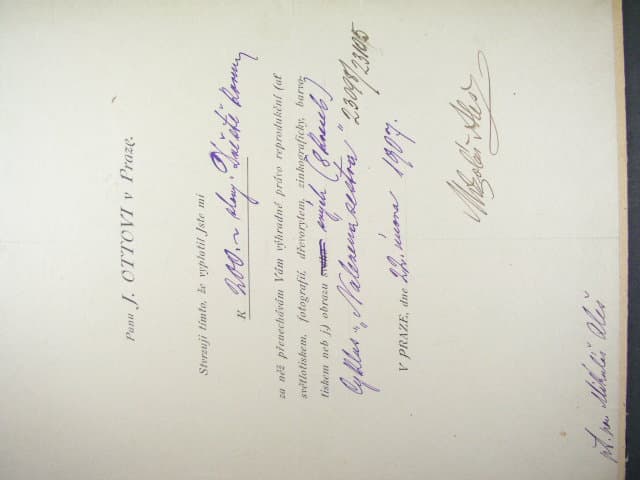 Panu J. OTTOVI v Praze.
Stvrzuji tímto, že vyplatil Jste mi
K 200.– slovy: Dvěstě korun
za něž přenechávám Vám výhradné právo reprodukční (ať
světlotiskem, fotografií, dřevorytem, zinkograficky, barvo-
tiskem neb j.) obrazu ových (8 kreseb)
Cyklus „Nalezená sestra" 23098/23105
V PRAZE, dne 22. února 1907.
Mikoláš Aleš
pan Mikuláš Aleš